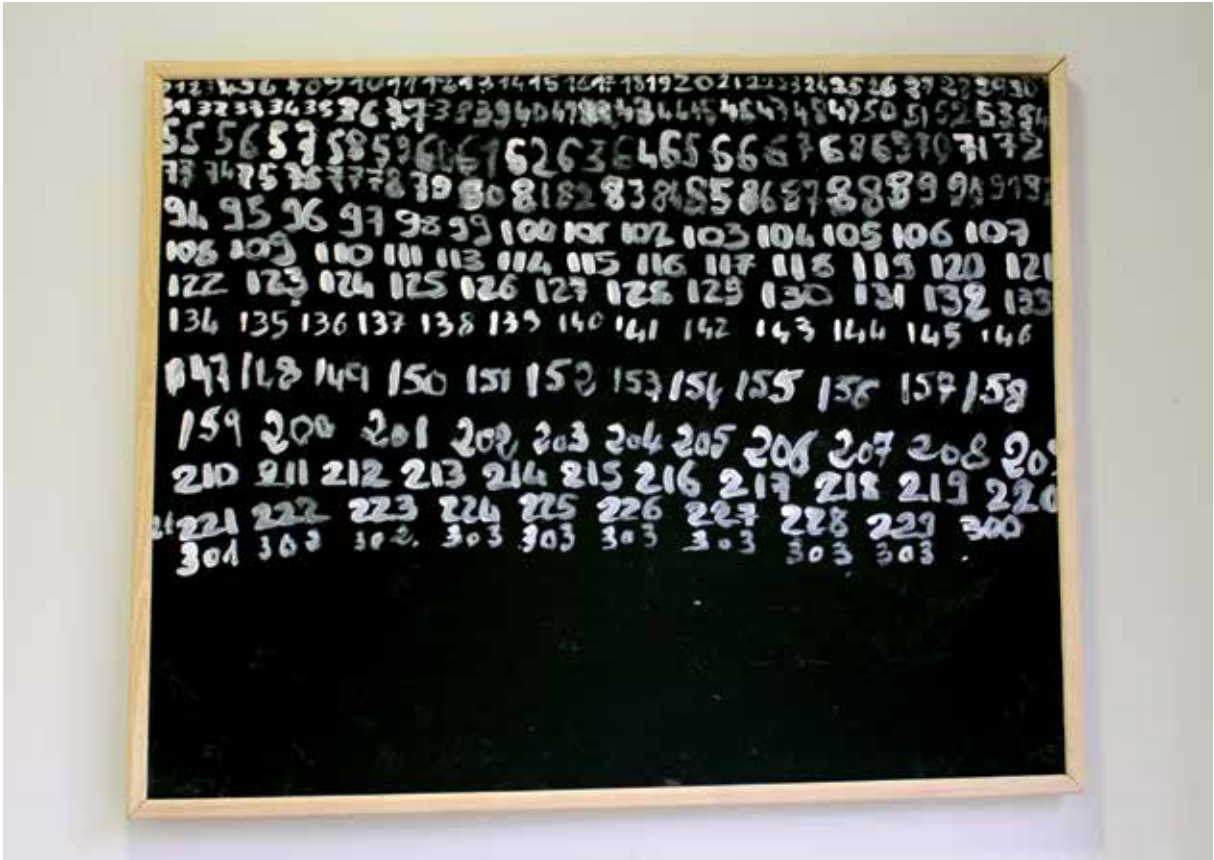 10 11 12 13 14 15 16 17 18 19 20 21 22 23 24 25 26 27 28 29 30
31 32 33 34 35 36 37 38 39 40 41 42 43 44 45 46 47 48 49 50 51 52 53 54
55 56 57 58 59 60 61 62 63 64 65 66 67 68 69 70 71 72
73 74 75 76 77 78 79 80 81 82 83 84 85 86 87 88 89 90 91 92
94 95 96 97 98 99 100 101 102 103 104 105 106 107
108 109 110 111 113 114 115 116 117 118 119 120 121
122 123 124 125 126 127 128 129 130 131 132 133
134 135 136 137 138 139 140 141 142 143 144 145 146
147 148 149 150 151 152 153 154 155 156 157 158
159 200 201 202 203 204 205 206 207 208 209
210 211 212 213 214 215 216 217 218 219 220
221 222 223 224 225 226 227 228 229 300
301 302 302. 303 303 303 303 303 303 .